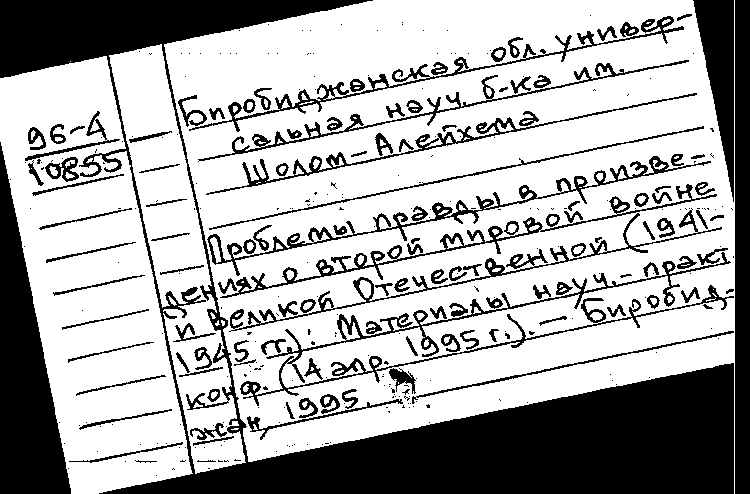 96-4
10855
Биробиджанская обл. универ-
сальная науч. б-ка им.
Шолом-Алейхема
Проблемы правды в произве-
дениях о второй мировой войне
и Великой Отечественной (1941-
1945 гг.): Материалы науч.-практ
конф. (14 апр. 1995 г.). — Биробид-
жан, 1995.